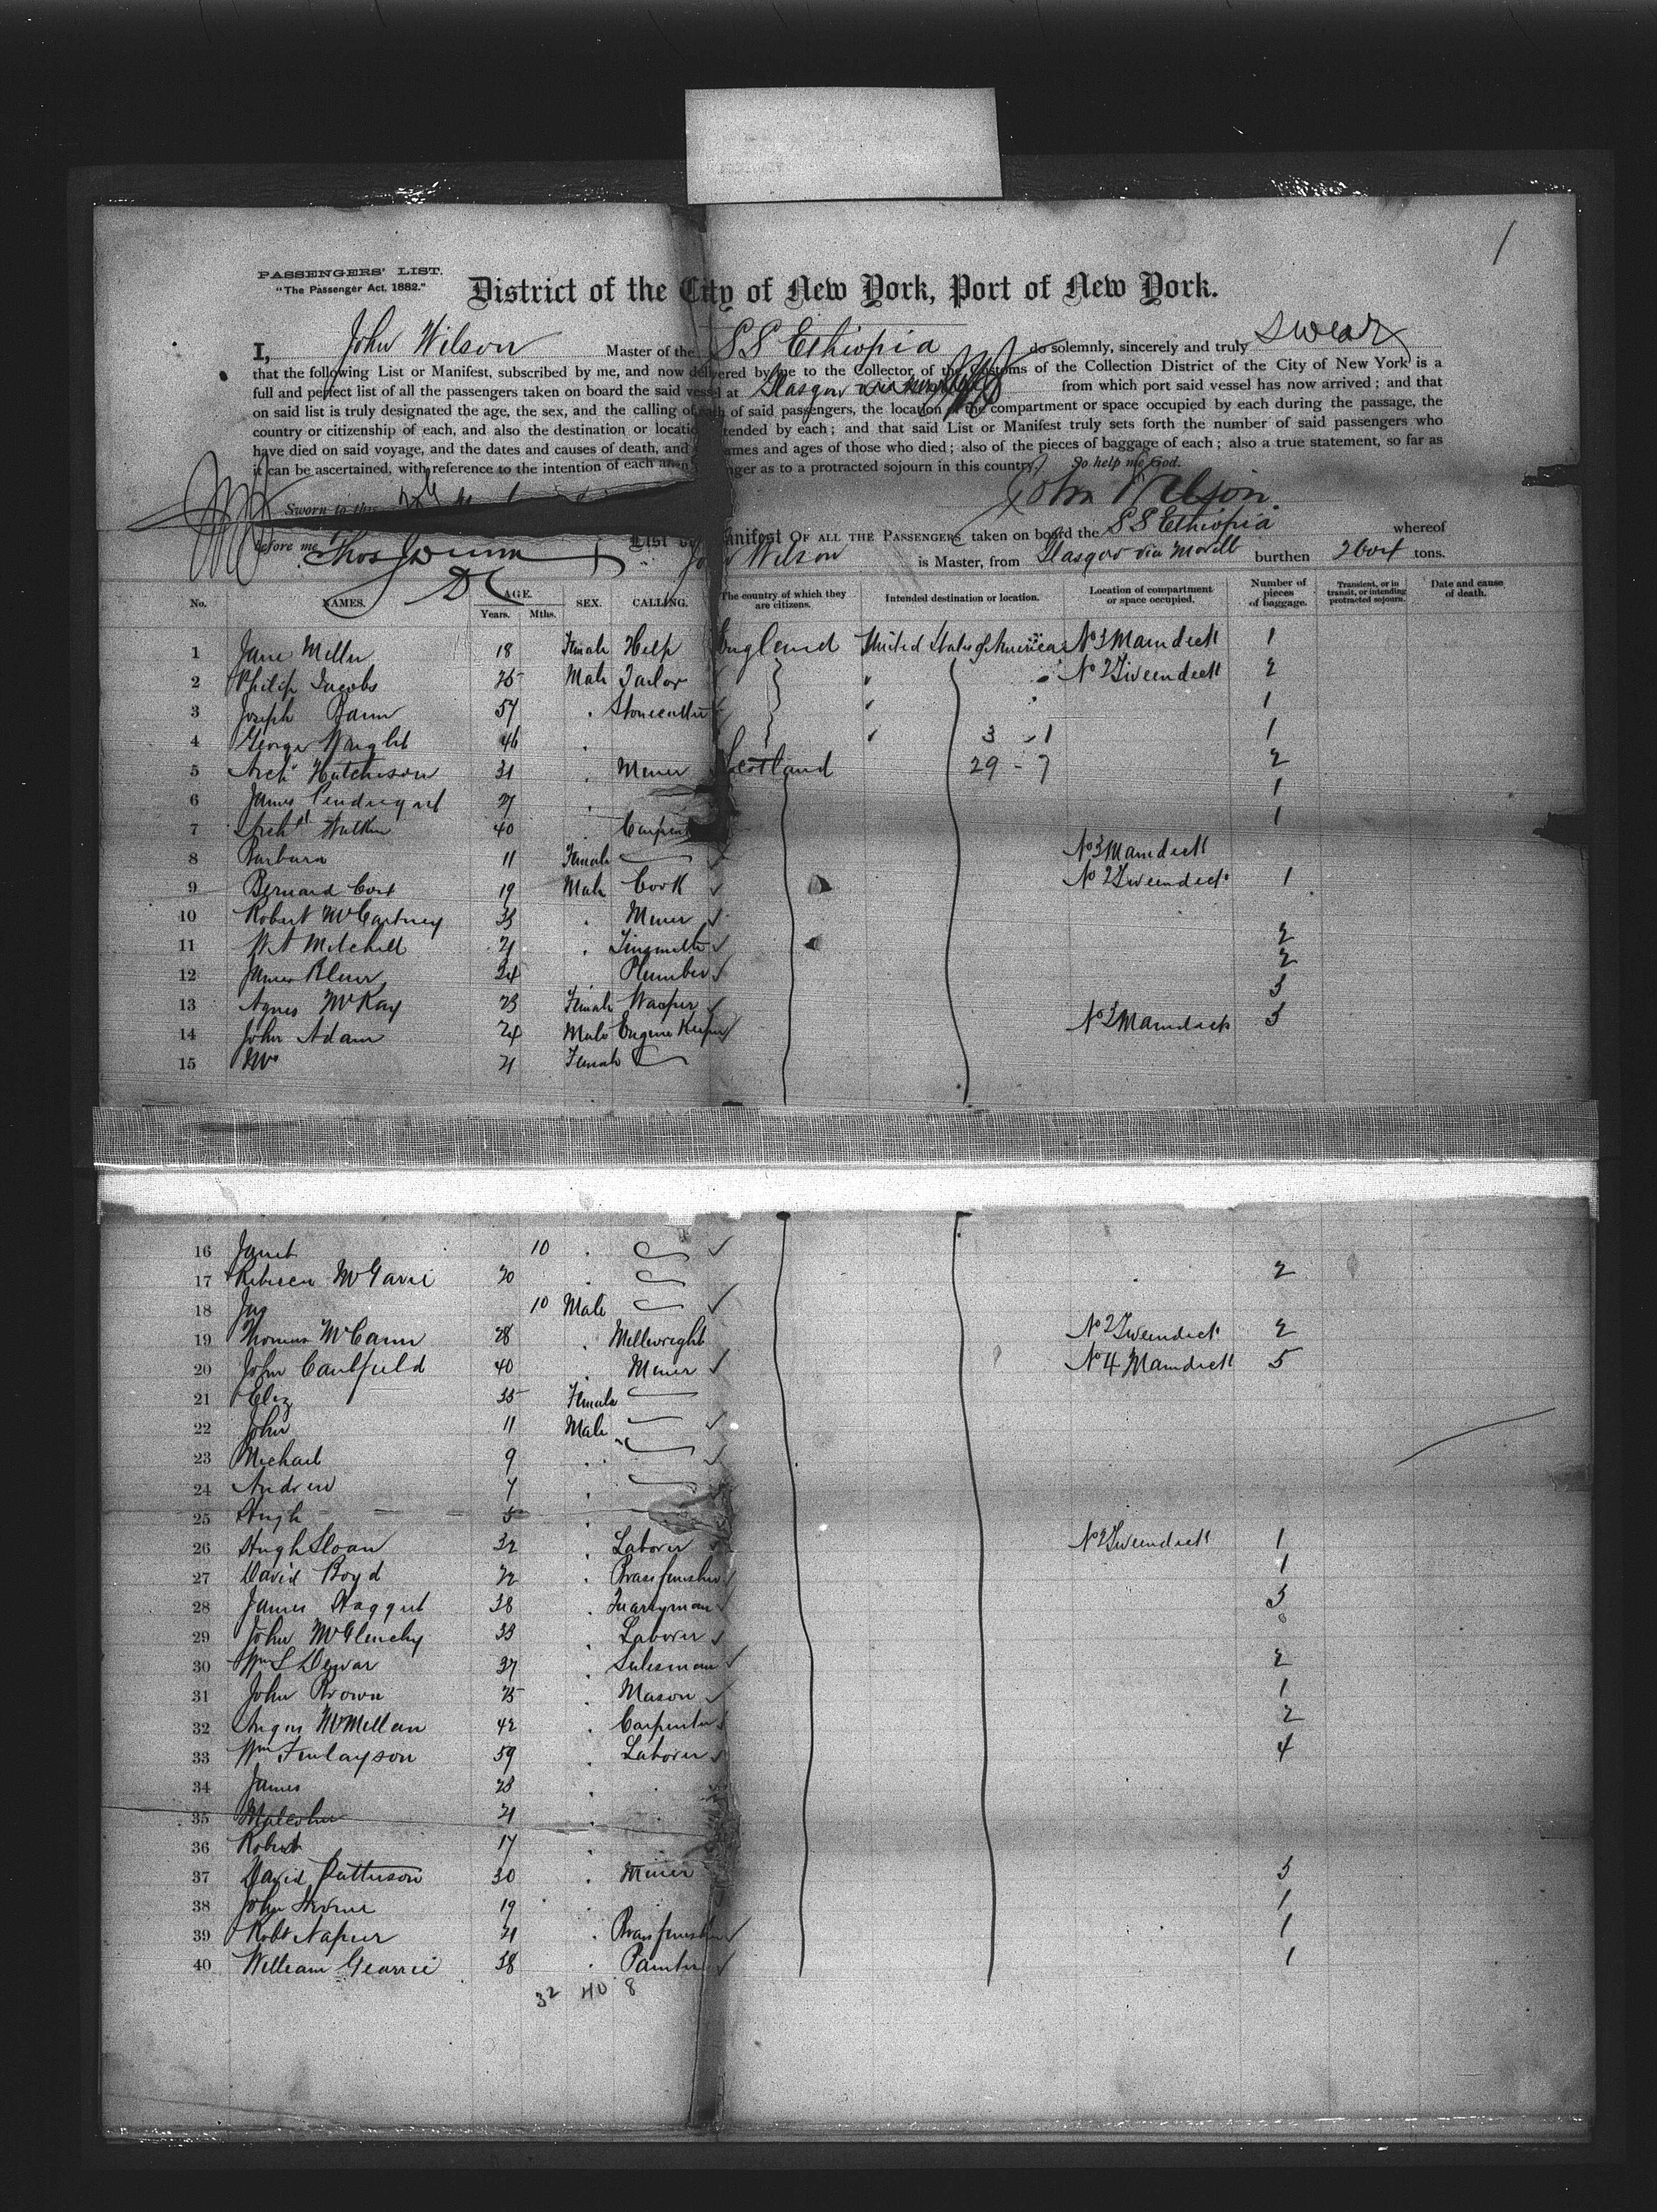 1
PASSENGERS' LIST.
"The Passenger Act, 1882."
District of the City of New York, Port of New York.
I, John Wilson Master of the SS Ethiopia do solemnly, sincerely and truly swear
that the following List or Manifest, subscribed by me, and now delivered by me to the Collector of the Customs of the Collection District of the City of New York is a
full and perfect list of all the passengers taken on board the said vessel at Glasgow from which port said vessel has now arrived; and that
on said list is truly designated the age, the sex, and the calling of each of said passengers, the location of the compartment or space occupied by each during the passage, the
country or citizenship of each, and also the destination or location intended by each; and that said List or Manifest truly sets forth the number of said passengers who
have died on said voyage, and the dates and causes of death, and names and ages of those who died; also of the pieces of baggage of each; also a true statement, so far as
it can be ascertained, with reference to the intention of each as to a protracted sojourn in this country. So help me God.
Sworn to this John Wilson
before me Thos Dunn List or Manifest OF ALL THE PASSENGERS taken on board the SS Ethiopia whereof
John Wilson is Master, from Glasgow via Moville burthen tons.
No. NAMES. AGE. Years. Mths. SEX. CALLING. The country of which they are citizens. Intended destination or location. Location of compartment or space occupied. Number of pieces of baggage. Transient, or in transit, or intending protracted sojourn. Date and cause of death.
1 Jane Miller 18 Female Help England United States of America No 3 Maindeck 1
2 Philip Jacobs 25 Male Tailor " No 2 Tweendeck 2
3 Joseph 54 " Stonecutter " 1
4 George Wright 46 " " 3 - 1 1
5 Archd Hutchison 31 " Miner Scotland 29 - 7 2
6 James 21 " 1
7 Archd 40 " Carpenter 1
8 Barbara 11 Female No 3 Maindeck
9 Bernard 19 Male Cook No 2 Tweendeck 1
10 Robert McCartney 33 " Miner
11 Mitchell 21 " Tinsmith 2
12 James Blair 24 " Plumber 2
13 Agnes McKay 23 Female 3
14 John Adam 24 Male Engine Keeper Maindeck 3
15 Mrs 21 Female
16 Janet 10 "
17 Rebecca McGarvie 20 " 2
18 Jas 10 Male
19 Thomas McCann 28 " Millwright No 2 Tweendeck 2
20 John Caulfield 40 Miner No 4 Maindeck 5
21 Eliz 35 Female
22 John 11 Male
23 Michael 9 "
24 Andrew 7 "
25 Hugh 5 "
26 Hugh Sloan 32 " Laborer No 2 Tweendeck 1
27 David Boyd 22 " Brassfinisher 1
28 James 38 " Quarryman 3
29 John McGlinchy 33 " Laborer 0
30 Wm S Dewar 37 " Salesman 2
31 John Brown 25 " Mason 1
32 Angus McMillan 42 " Carpenter 2
33 Wm Finlayson 59 " Laborer 4
34 James 23 " "
35 Malcolm 21 " "
36 Robert 17 "
37 David Patterson 30 " Miner 3
38 John 19 " 1
39 Robt Napier 21 " Brassfinisher 1
40 William Gearrie 38 " Painter 1
32 40 8